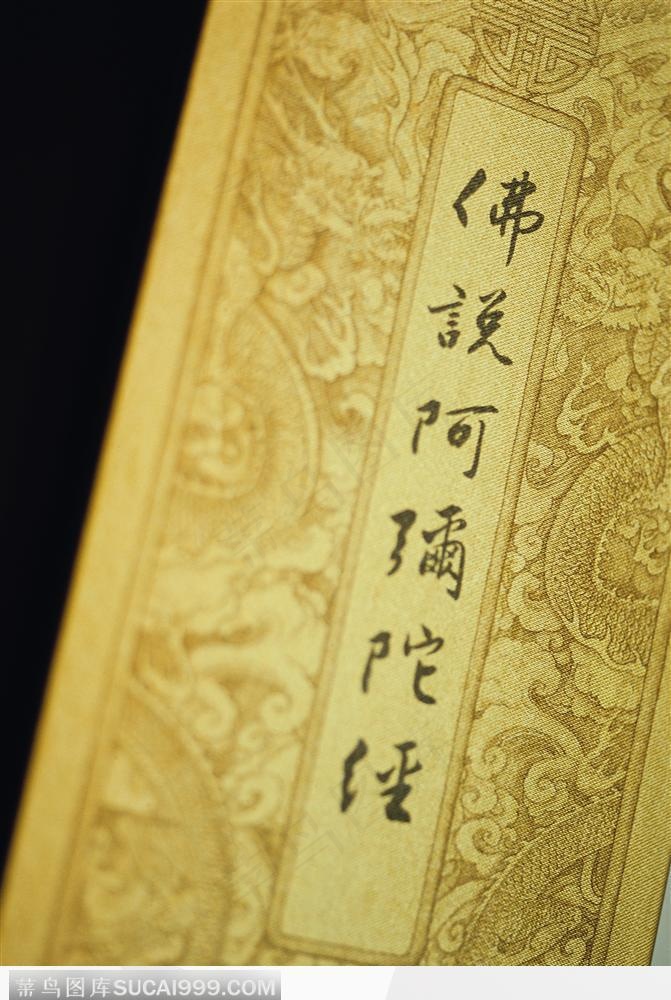 佛說阿彌陀經
菜鸟图库SUCAI999.COM